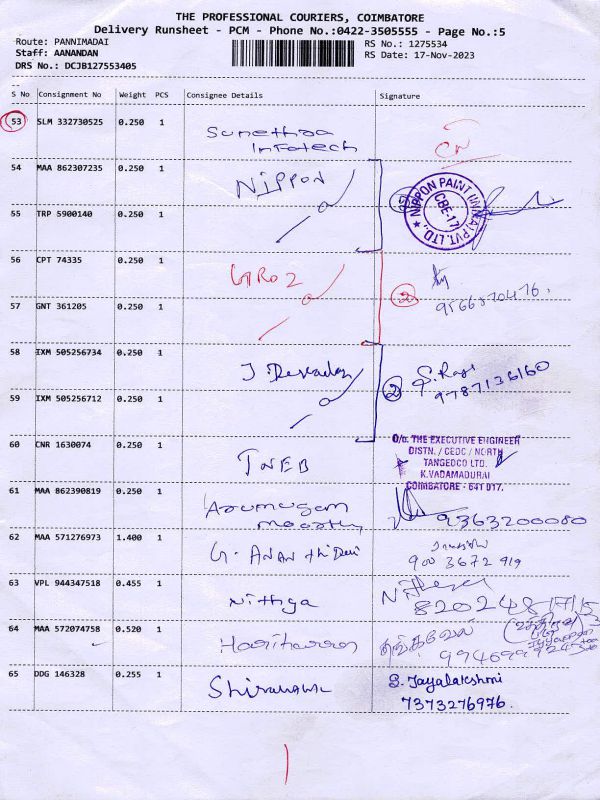 THE PROFESSIONAL COURIERS, COIMBATORE
Delivery Runsheet - PCM - Phone No.:0422-3505555 - Page No.:5
Route: PANNIMADAI
RS No.: 1275534
Staff: AANANDAN
RS Date: 17-Nov-2023
DRS No.: DCJB127553405
S No Consignment No Weight PCS Consignee Details Signature
53 SLM 332730525 0.250 1 Infotech
54 MAA 862307235 0.250 1 NIPPON
NIPPON PAINT PVT. LTD. CBE-17
55 TRP 5900140 0.250 1
56 CPT 74335 0.250 1
2 9566570476.
57 GNT 361205 0.250 1
58 IXM 505256734 0.250 1
2 9787136160
59 IXM 505256712 0.250 1
60 CNR 1630074 0.250 1 TNEB
O/o. THE EXECUTIVE ENGINEER
DISTN. / CEDC / NORTH
TANGEDCO LTD.
K.VADAMADURAI
COIMBATORE - 641 017.
61 MAA 862390819 0.250 1 Arumugam
9363200080
62 MAA 571276973 1.400 1 G. ANANthi Devi
900 3672 919
63 VPL 944347518 0.455 1 Nithya
64 MAA 572074758 0.520 1 Hariharan தங்கவேல்
65 DDG 146328 0.255 1 S. Jayalakshmi
7373276976.